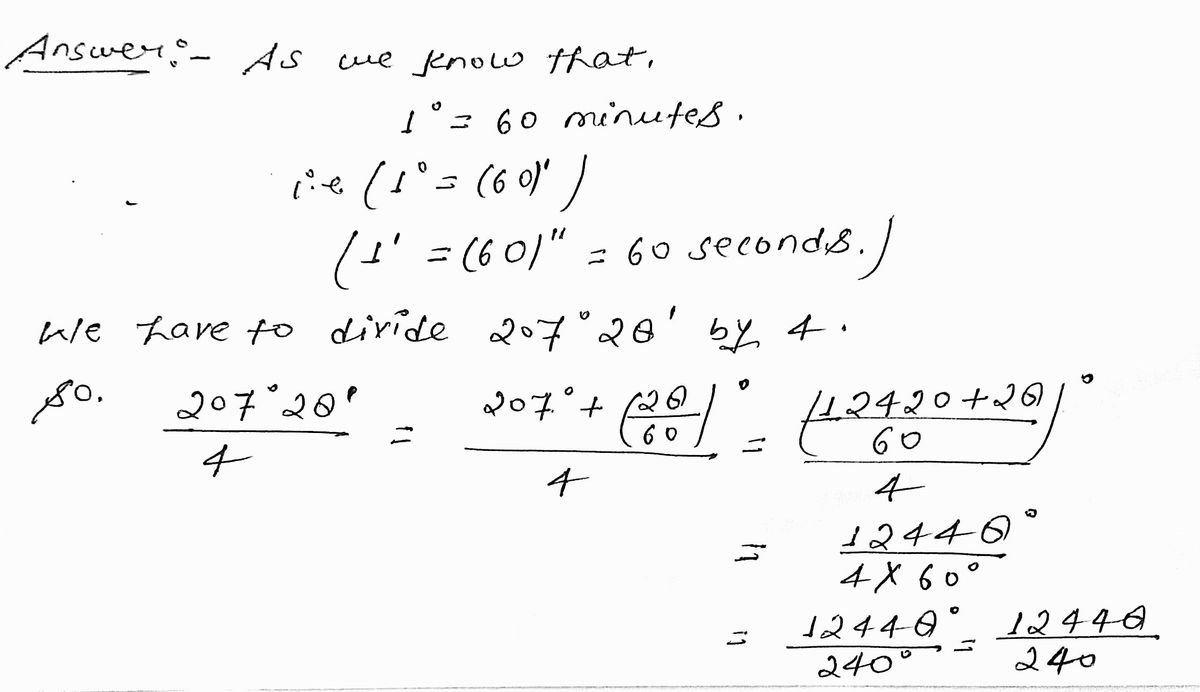 Answer:- As we know that,
1° = 60 minutes.
i.e (1° = (60)')
(1' = (60)" = 60 seconds.)
We have to divide 207°28' by 4.
So. 207°28'/4 = (207° + (28/60)°)/4 = ((12420+28)/60)°/4
= 12448°/(4 × 60°)
= 12448°/240° = 12448/240